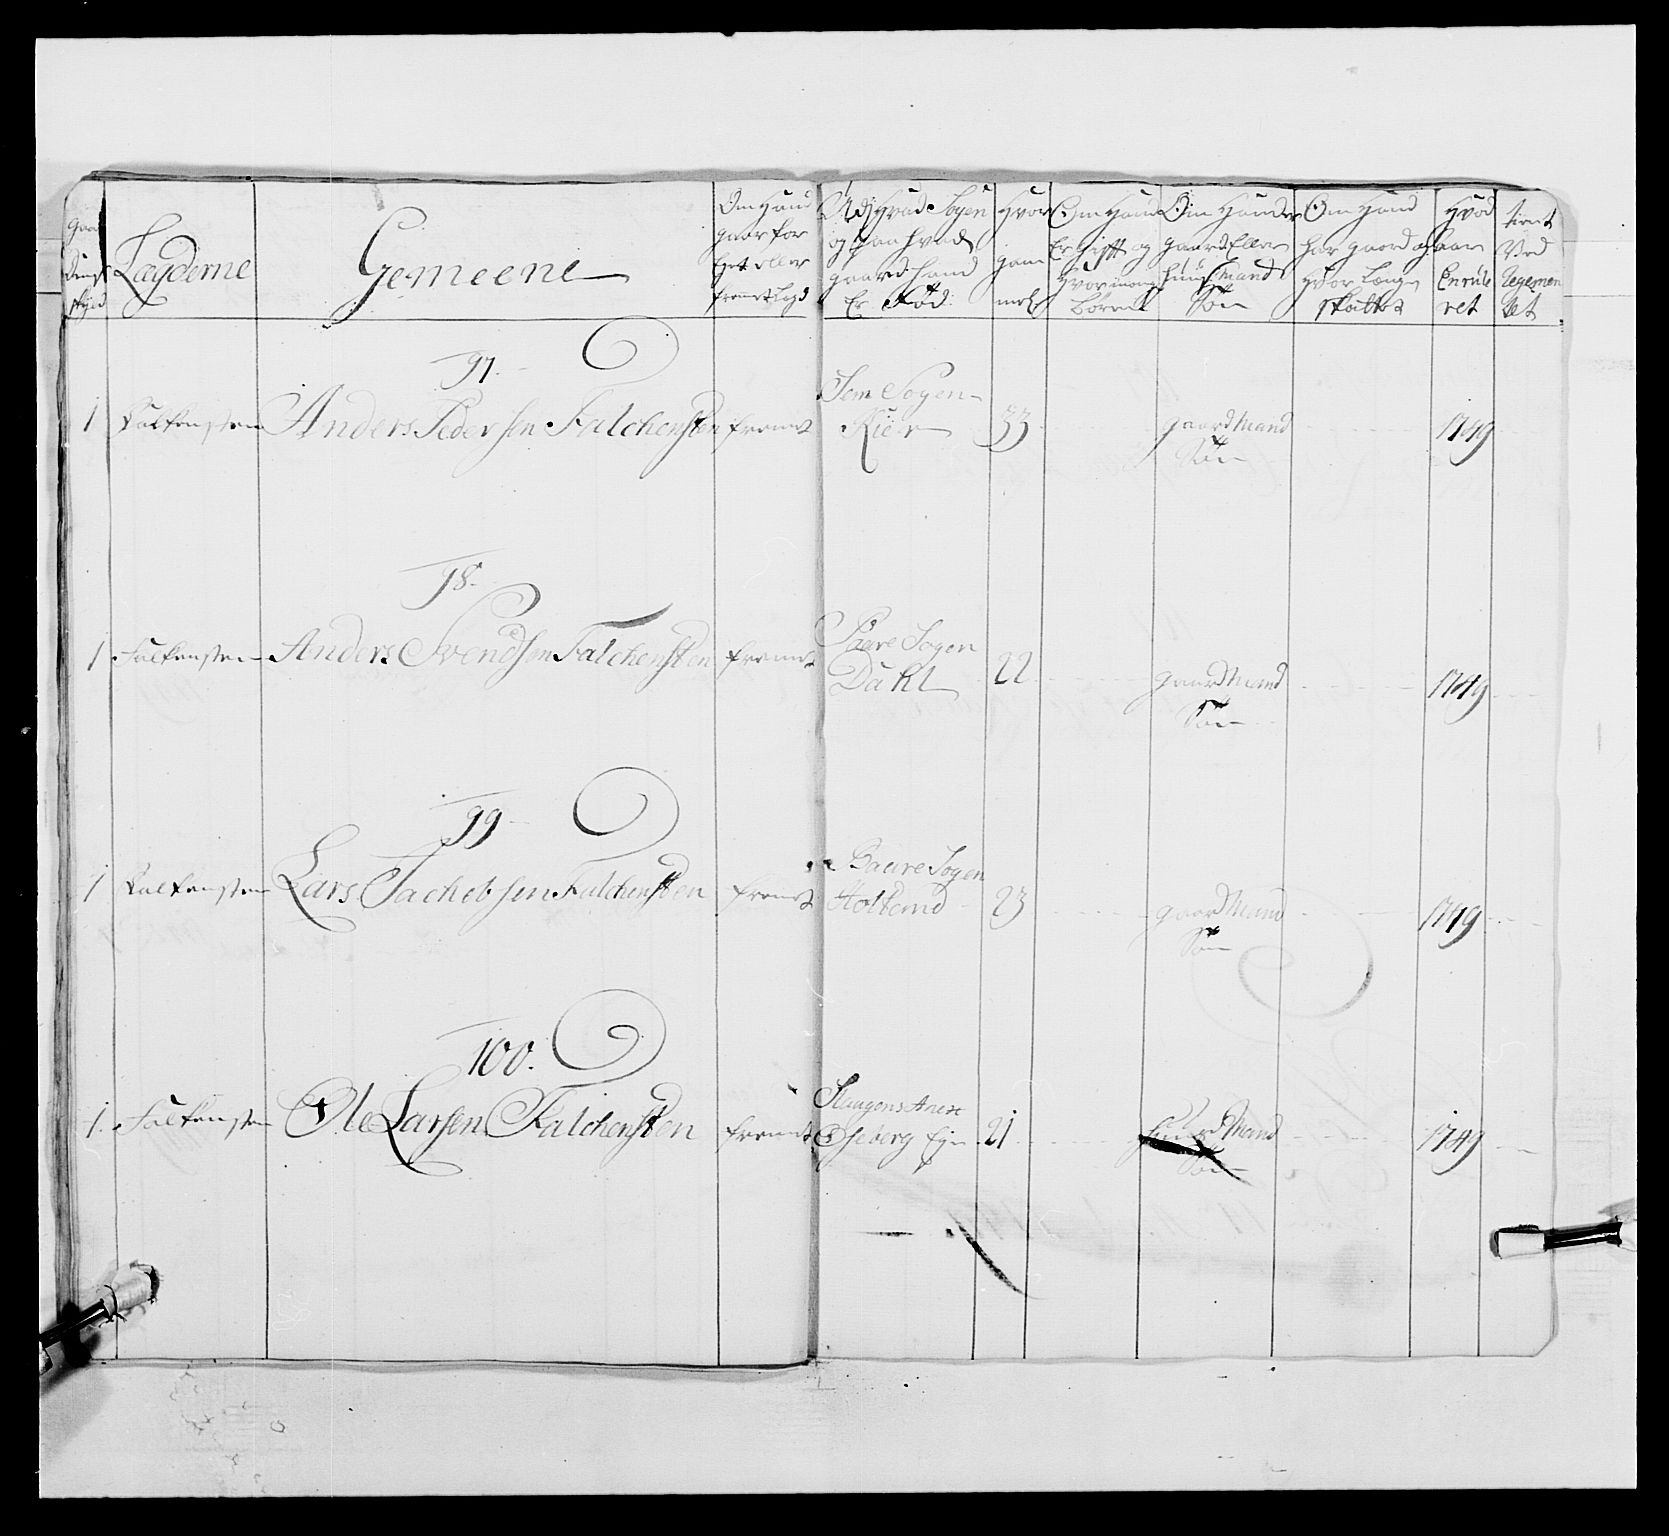 Lagderne
Gemeene
Om Hand
gaar for
Eget eller
fremt Lægd
Udj Hvad Sogen
og paa hvad
gaard hand
Er Fød
Hvor
gam
mel
Om Hand
Er gift og
Hvor mange
börn
Om Hand er
gaard Eller
huus Mands
Søn
Om Hand
har gaord og
Hvor længe
skatted
Hvad
aar
Enrule
ret
tient
Ved
Regemen
tet
97.
1 Falkensteen Anders Pedersen Falchensten fremt
Sem Sogen
Kier
33
gaard Mand
Søn
1749
98.
1 Falkensteen Anders Svendsen Falchensten fremt
Baare Sogen
Dahl
22
gaard Mand
Søn
1749
99
1 Falkensten Lars Jachobsen Falchensten fremt
Baare Sogen
23
gaard Mand
Søn
1749
100.
1. Falkensten Ole Larsen Falchensten fremt
Slaugens Anex
Oseberg Eje
21
Mand
Søn
1749